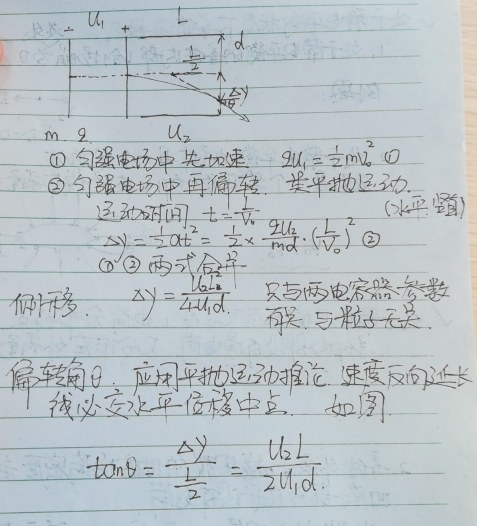 U₁ L
d
L/2
Δy
θ
m q U₂
① 匀强电场中先加速 qU₁=½mV₀² ①
② 匀强电场中再偏转 类平抛运动
运动时间 t=L/V₀ (水平,竖直)
Δy=½at²=½×qU₂/md·(L/V₀)² ②
①②两式合并
侧移 Δy=U₂L²/4U₁d. 只与两电容器参数
有关,与粒子无关.
偏转角θ.应用平抛运动推论 速度反向延长
线必交水平位移中点. 如图.
tanθ=Δy/(L/2)=U₂L/2U₁d.